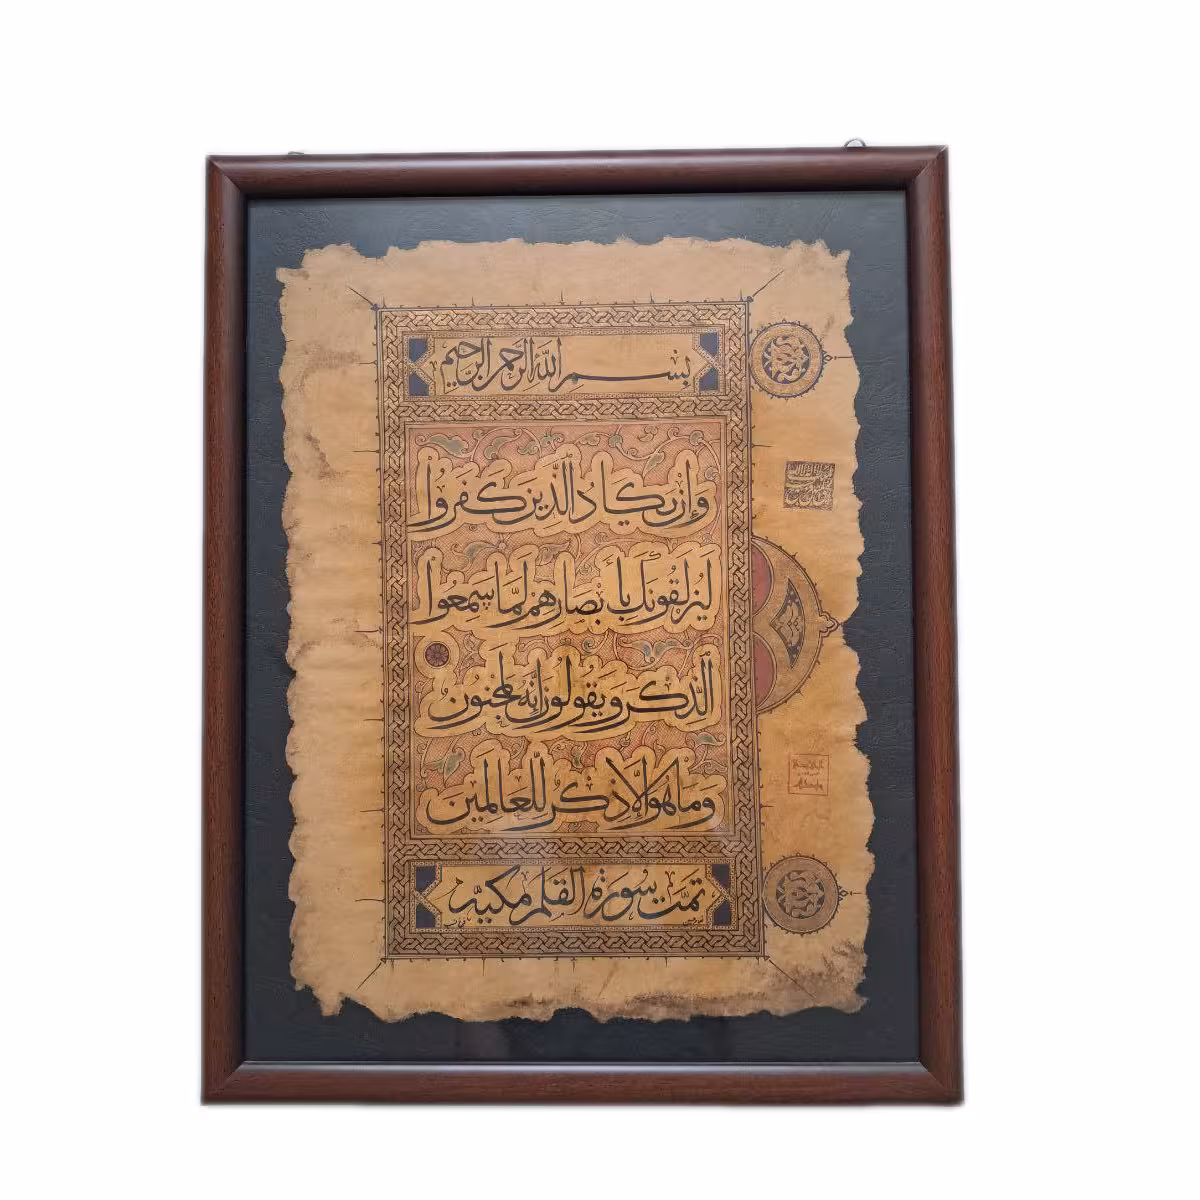 بسم الله الرحمن الرحيم
وَإِن يَكَادُ الَّذِينَ كَفَرُوا
لَيُزْلِقُونَكَ بِأَبْصَارِهِمْ لَمَّا سَمِعُوا
الذِّكْرَ وَيَقُولُونَ إِنَّهُ لَمَجْنُون
وَمَا هُوَ إِلَّا ذِكْرٌ لِّلْعَالَمِينَ
تمت سورة القلم مكية